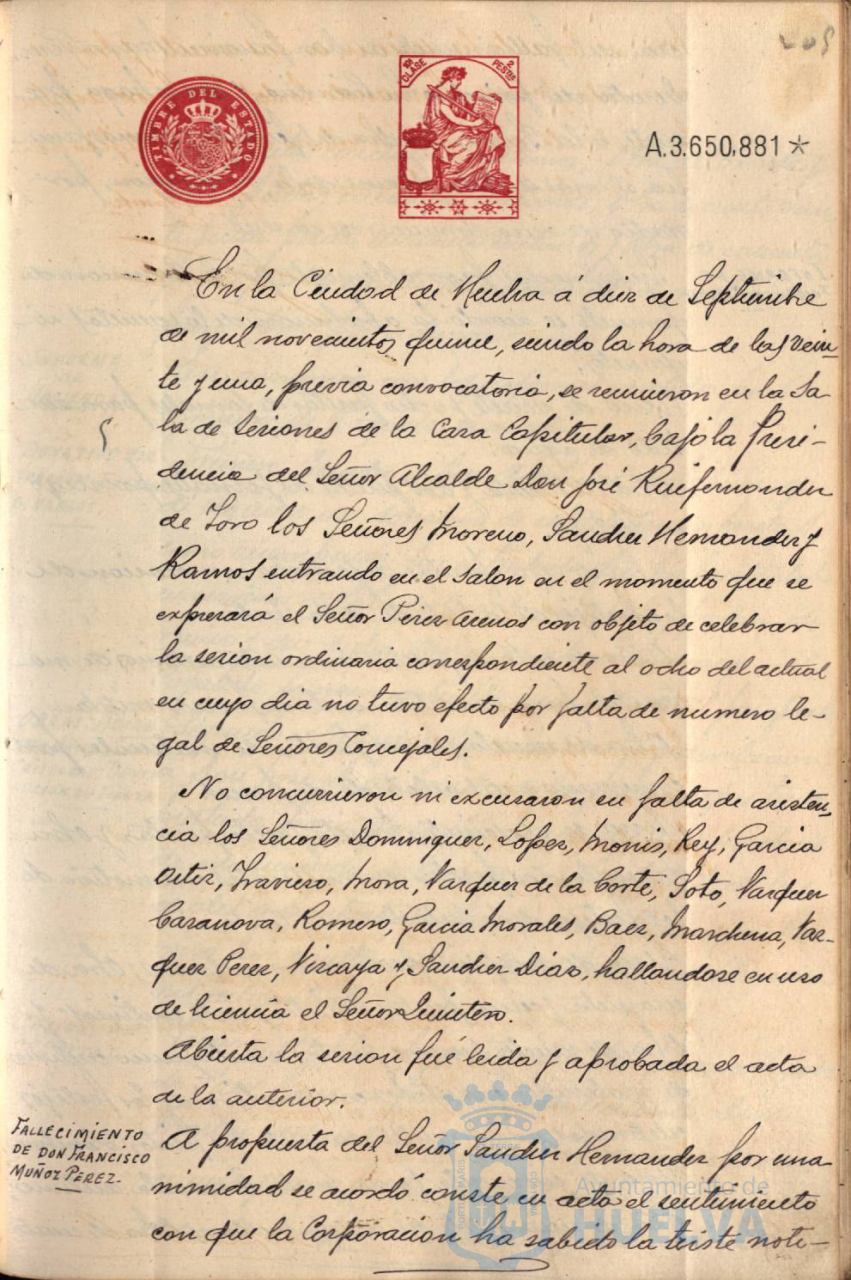 205
TIMBRE DEL ESTADO
10ª CLASE 2 PESTAS
A.3.650,881*
En la Ciudad de Huelva á diez de Septiembre
de mil novecientos quince, siendo la hora de las vein-
te y una, previa convocatoria, se reunieron en la Sa-
la de Sesiones de la Casa Capitular, bajo la Presi-
dencia del Señor Alcalde Don José Ruifernandez
de Toro los Señores Moreno, Sanchez Hernandez y
Ramos entrando en el salon en el momento que se
expresará el Señor Pérez Arenas con objeto de celebrar
la sesion ordinaria correspondiente al ocho del actual
en cuyo dia no tuvo efecto por falta de numero le-
gal de Señores Concejales.
No concurrieron ni excusaron su falta de asisten-
cia los Señores Dominguez, Lopez, Monis, Rey, Garcia
Ortiz, Travieso, Mora, Vazquez de la Corte, Soto, Vazquez
Casanova, Romero, Garcia Morales, Baez, Marchena, Vaz-
quez Perez, Vizcaya y Sanchez Diaz, hallandose en uso
de licencia el Señor Quintero.
Abierta la sesion fué leida y aprobada el acta
de la anterior.
FALLECIMIENTO
DE DON FRANCISCO
MUÑOZ PEREZ.
A propuesta del Señor Sanchez Hernandez por una-
nimidad se acordó conste en acta el sentimiento
con que la Corporacion ha sabido la triste noti-
Ayuntamiento de
HUELVA